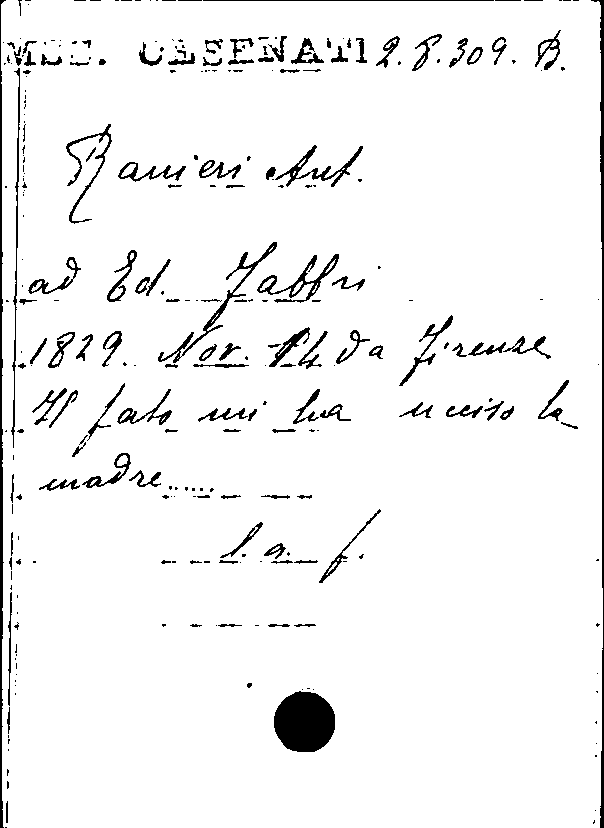 MSS. CESENATI 2.8.309. B.
Ranieri Ant.
ad Ed. Fabbri
1829. Nov. 14 da Firenze
Il fato mi ha ucciso la
madre......
l. a. f.